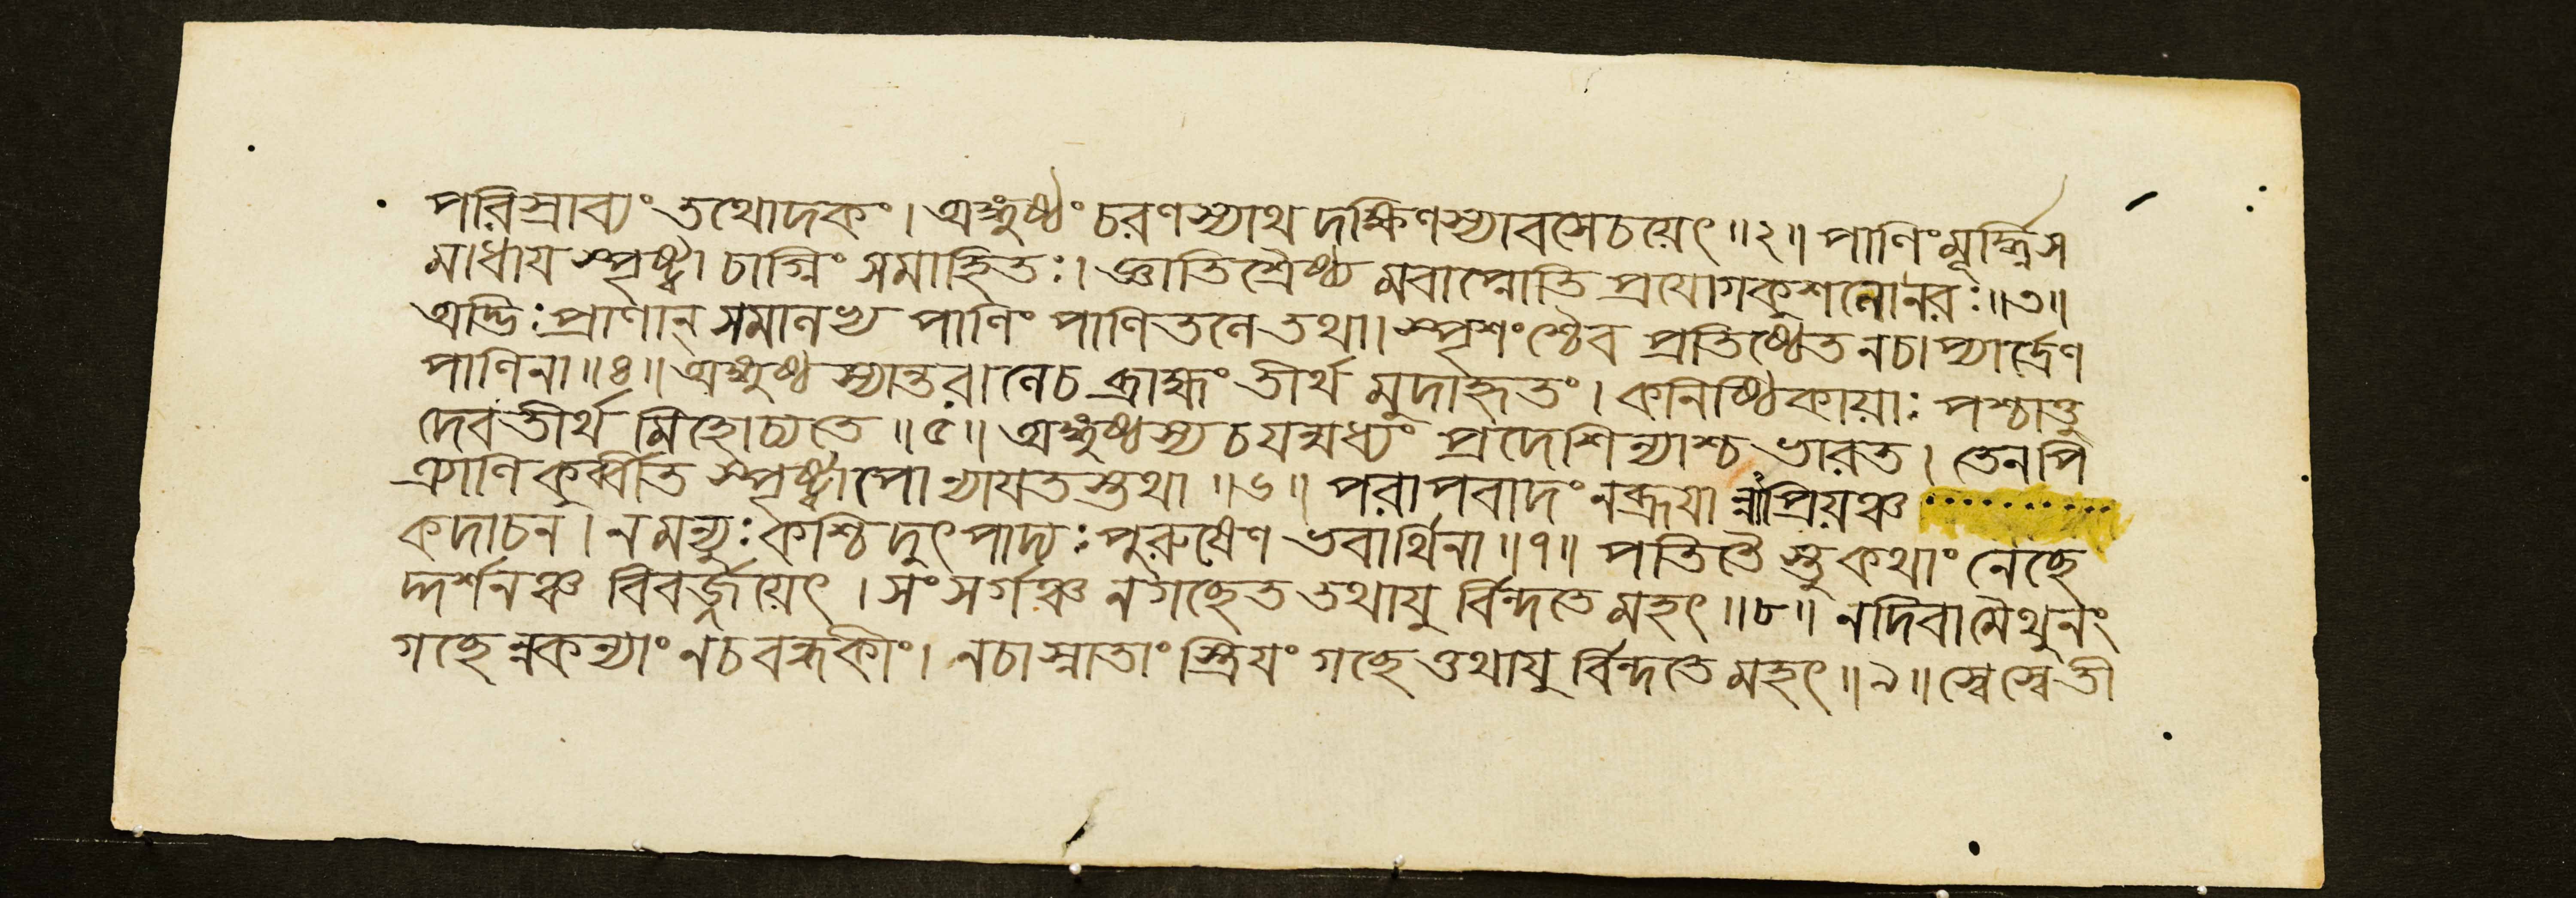 পরিস্রাব্যং তথোদকং। অঙ্গুষ্ঠং চরণস্যাথ দক্ষিণস্যাবসেচয়েৎ॥২॥ পাণিং মূর্দ্ধ্নি স
মাধায স্পৃষ্ট্বা চাগ্নিং সমাহিতঃ। জ্ঞাতিশ্রৈষ্ঠ্য মবাপ্নোতি প্রযোগকুশলোনরঃ॥৩॥
অদ্ভিঃ প্রাণান্ সমালভ্য পাণিং পাণিতলে তথা। স্পৃশংশ্চৈব প্রতিষ্ঠেত নচাপ্যার্দ্রেণ
পাণিনা॥৪॥ অঙ্গুষ্ঠস্যান্তরালেচ ব্রাহ্মং তীর্থ মুদাহৃতং। কনিষ্ঠিকায়াঃ পশ্চাত্তু
দেবতীর্থ মিহোচ্যতে॥৫॥ অঙ্গুষ্ঠস্য চ যন্মধ্যং প্রদেশিন্যাশ্চ ভারত। তেন পি
ত্র্যাণি কুর্ব্বীত স্পৃষ্ট্বাপো ন্যাযতস্তথা॥৬॥ পরাপবাদং নব্রূযা ন্নাপ্রিয়ঞ্চ ............
কদাচন। ন মন্যুঃ কশ্চিদুৎপাদ্যঃ পুরুষেণ ভবার্থিনা॥৭॥ পতিতৈ স্তু কথাং নেচ্ছে
দ্দর্শনঞ্চ বিবর্জ্জয়েৎ। সংসর্গঞ্চ নগচ্ছেত তথাযু র্বিন্দতে মহৎ॥৮॥ নদিবা মৈথুনং
গচ্ছে ন্নকন্যাং নচ বন্ধকীং। নচাস্নাতাং স্ত্রিযং গচ্ছে ত্তথাযু র্বিন্দতে মহৎ॥৯॥ স্বে স্বে তী